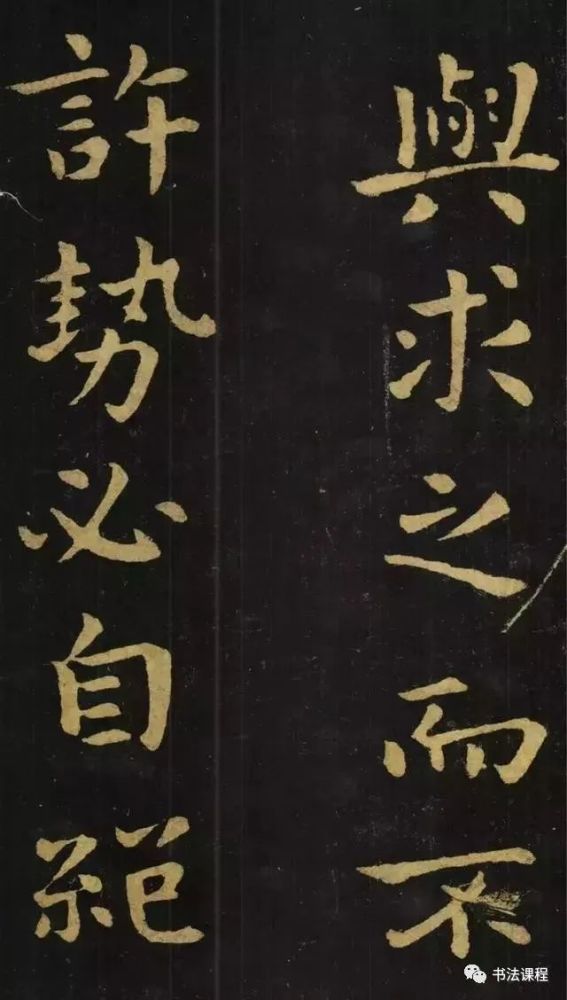 與求之而不
許勢必自絕
书法课程